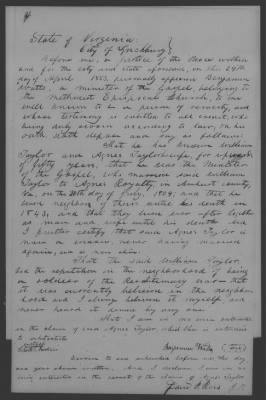 State of Virginia.
City of Lynchburg }
Before me, a Justice of the Peace within
and for the city and state aforesaid, on this 24th
day of April 1883, personally appeared Benjamin
a minister of the Gospel, belonging to
the Methodist Episcopal Church, to me
well known to be a person of veracity, and
whose testimony is entitled to all credit, who
being duly sworn according to law, on his
oath doth depose and say as follows:
That he has known William
Taylor and Agnes Taylor his wife, for upwards
of fifty years, that he was the Minister
of the Gospel, who married said William
Taylor to Agnes Royalty, in Amherst county,
Va. on the 20th day of July, 1829; and that he
was neighbor of theirs until his death in
1843; and that they
as man and wife until his death. And
I further certify that said Agnes Taylor is
now a widow, never having married
again,
That the said William Taylor
had the reputation in the neighborhood of being
a soldier of the Revolutionary war, that
it was currently believed in the neighbor
hood and I always believed it myself and
never heard it denied by any one.
That I am in no wise interested
in the claim of said Agnes Taylor,
Benjamin
Sworn to and subscribed before me the day
and year above written, and I declare, I am in no
wise interested in the result of the claim of Agnes Taylor
J. P.